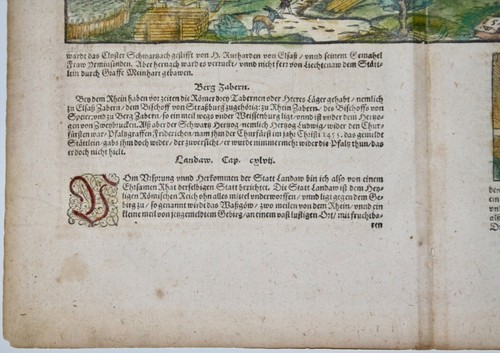 wardt das Closter Schwartzach gestifft von H. Rutharden von Elsaß / vnnd seinem Gemahel
Fraw Irminsinden. Aber hernach ward es verrukt / vnnd nicht ferr von Liechtenaw dem Stätt-
lein durch Graffe Meinhart gebawen.
Berg Zabern.
Bey dem Rhein haben vor zeiten die Römer drey Tabernen oder Heeres Läger gehabt / nemlich
zu Elsaß Zabern / dem Bischoff von Straßburg zugehörig: zu Rhein Zabern / des Bischoffs von
Speir: vnd zu Berg Zabern / so ein meil wegs vnder Weissenburg ligt / vnnd ist vnder dem Hertzo-
gen von Zweybrucken. Alß aber der Schwartz Hertzog nemlich Hertzog Ludwig / wider den Chur-
fürsten war / Pfaltzgraffen Friderichen / nam ihm der Churfürst im jar Christi 1455. das gemeldt
Stättlein / gabs ihm doch wider / der zuversicht / er wurde nimmermehr wider die Pfaltz thun / das
er doch nicht hielt.
Landaw. Cap. cxlvij.
Vom Vrsprung vnnd Herkommen der Statt Landaw bin ich also von einem
Ehrsamen Rhat derselbigen Statt berichtet. Die Statt Landaw ist dem Hey-
ligen Römischen Reich ohn alles mittel vnderworffen / vnnd ligt gegen dem Ge-
birg zu / so genannt wirdt das Waßgöw / zwo meilen von dem Rhein / vnnd ein
kleine meil von jengemeldtem Gebirg / an einem vast lustigen Ort / mit fruchtba-
ren